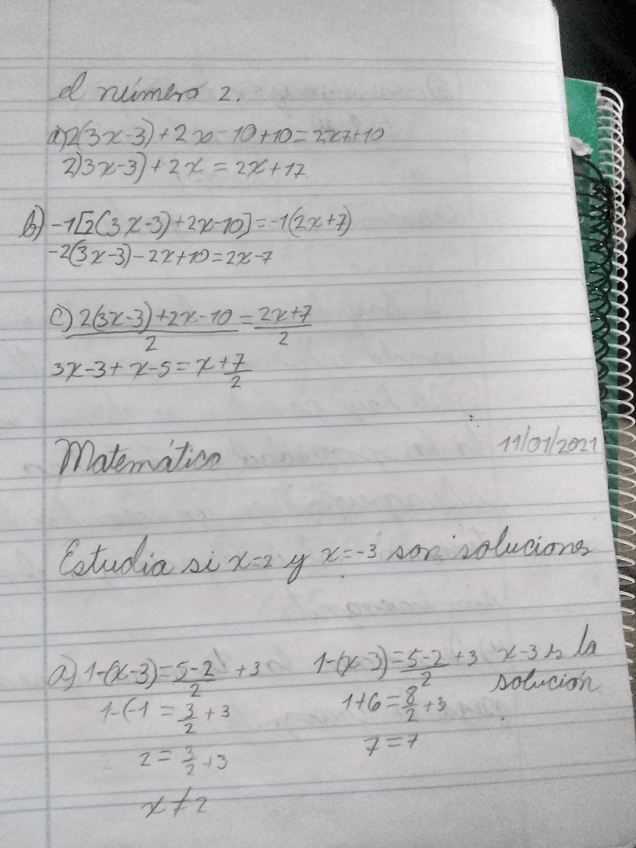 el número 2.
a)2(3x-3)+2x-10+10=2x7+10
2)3x-3)+2x=2x+17
b) -1[2(3x-3)+2x-10]=-1(2x+7)
-2(3x-3)-2x+10=2x-7
c) 2(3x-3)+2x-10 = 2x+7
2 2
3x-3+x-5=x+7
2
Matemática 11/01/2021
Estudia si x=2 y x=-3 son soluciones
a) 1-(x-3)=5-2 +3 1-(x-3)=5-2 +3 x-3 es la
2 2 solución
1-(-1 = 3 +3 1+6=8 +3
2 2
2 = 3 +3 7=7
2
x≠2